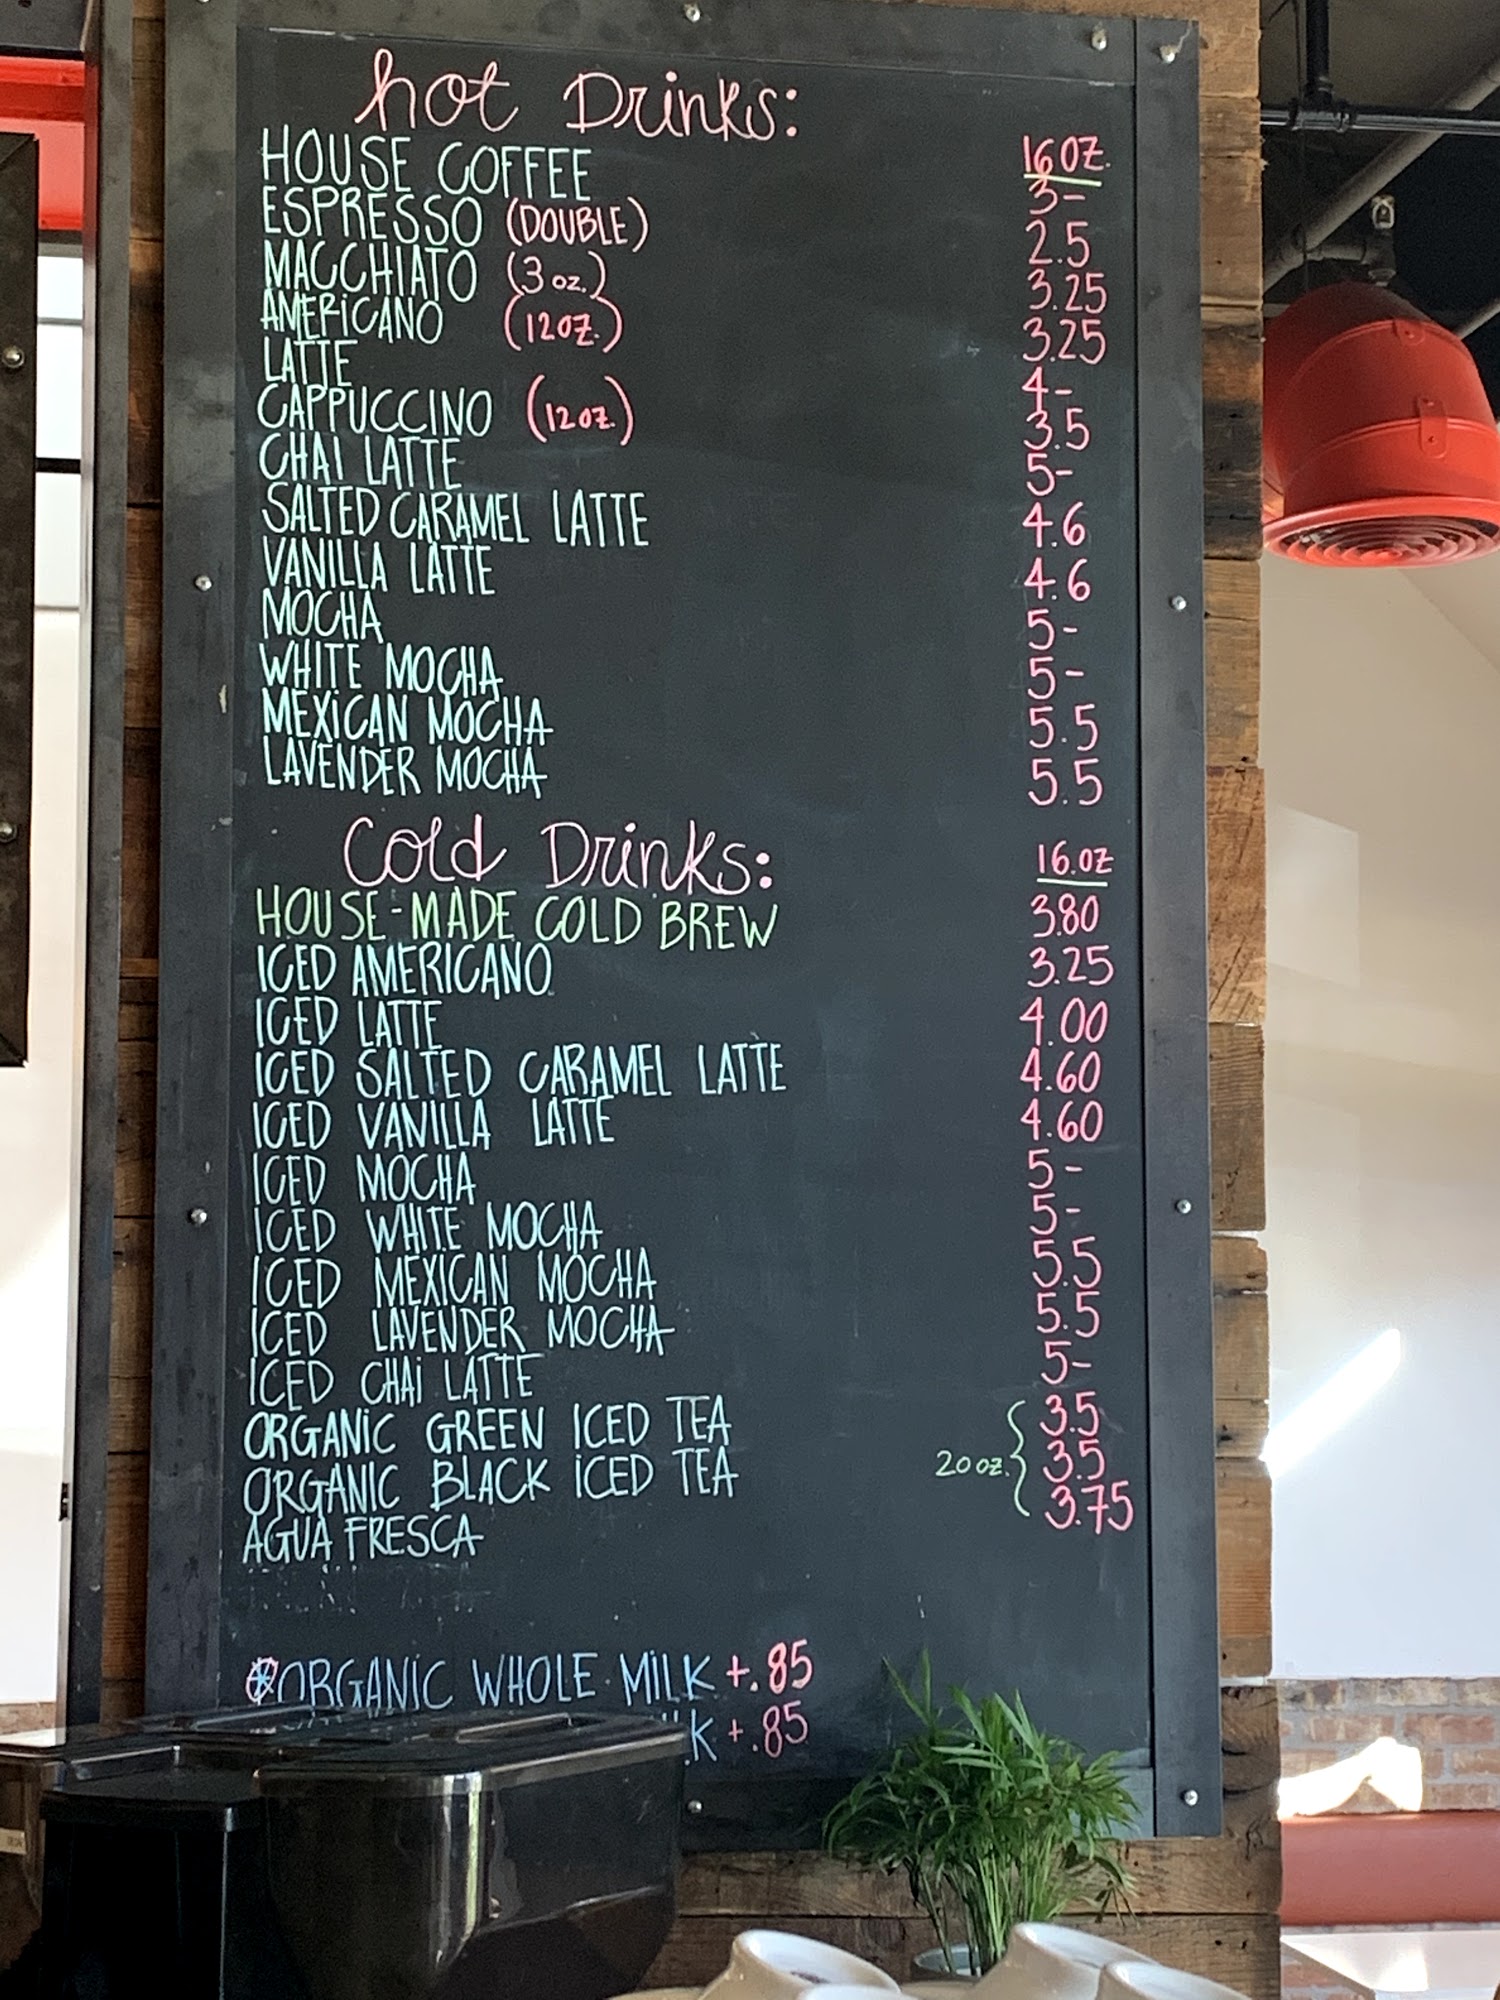 hot Drinks:
16 OZ.
HOUSE COFFEE 3-
ESPRESSO (DOUBLE) 2.5
MACCHIATO (3 oz.) 3.25
AMERiCANO (12OZ.) 3.25
LATTE 4-
CAPPUCCINO (12 OZ.) 3.5
CHAI LATTE 5-
SALTED CARAMEL LATTE 4.6
VANILLA LATTE 4.6
MOCHA 5-
WHITE MOCHA 5-
MEXiCAN MOCHA 5.5
LAVENDER MOCHA 5.5
Cold Drinks: 16.OZ
HOUSE-MADE COLD BREW 3.80
ICED AMERICANO 3.25
ICED LATTE 4.00
ICED SALTED CARAMEL LATTE 4.60
ICED VANILLA LATTE 4.60
ICED MOCHA 5-
ICED WHITE MOCHA 5-
ICED MEXICAN MOCHA 5.5
ICED LAVENDER MOCHA 5.5
ICED CHAi LATTE 5-
ORGANiC GREEN ICED TEA 3.5
ORGANIC BLACK iCED TEA 20 oz. 3.5
AGUA FRESCA 3.75
ORGANiC WHOLE MiLK +.85
+.85